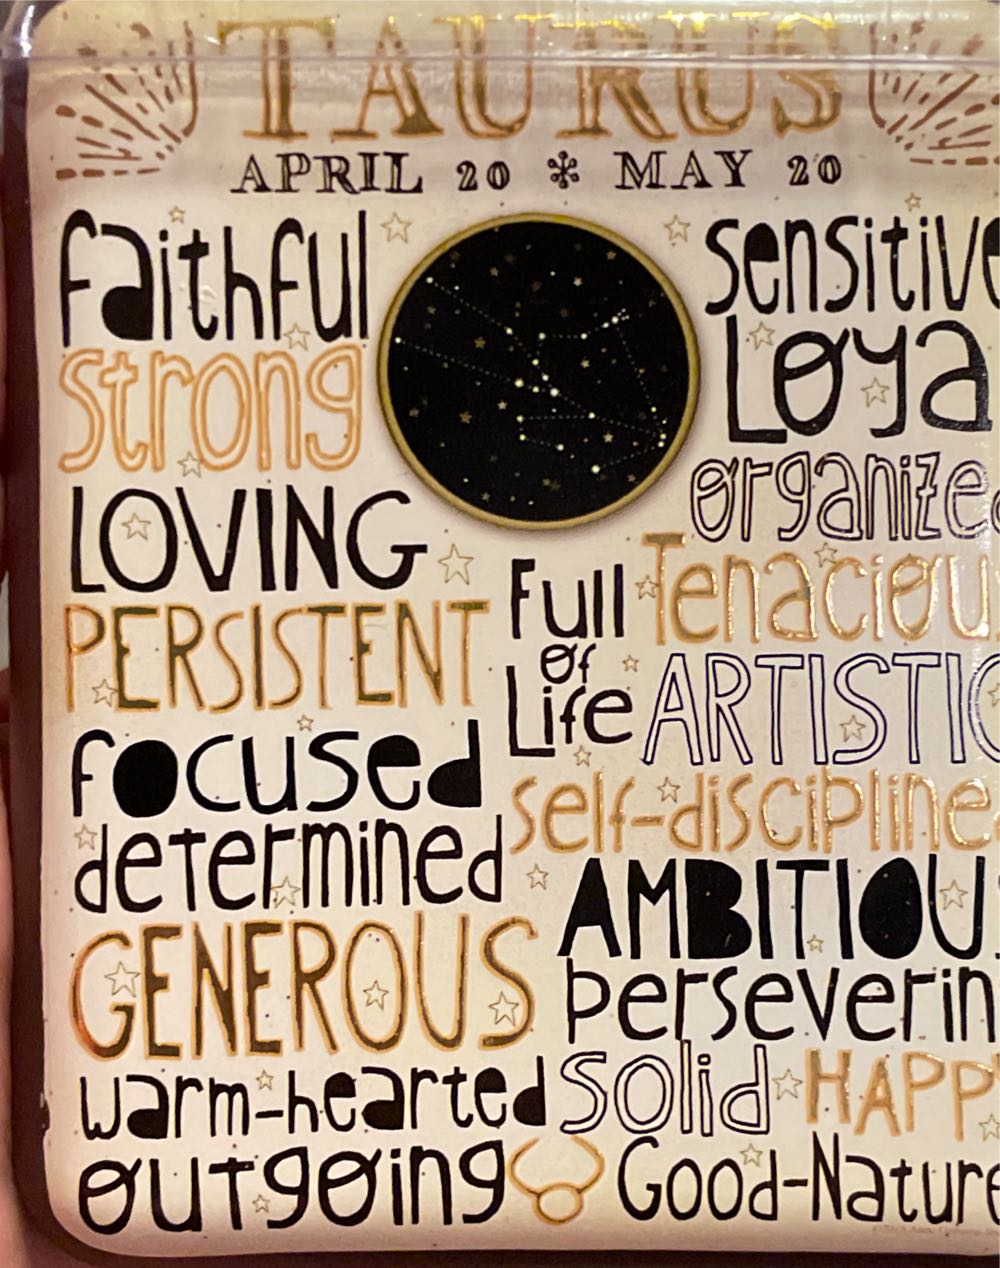 TAURUS
APRIL 20 * MAY 20
faithful
strong
LOVING
PERSISTENT
focused
determined
GENEROUS
warm-hearted
outgoing
Sensitive
Loya
organize
Full
of
Life
Tenaciou
ARTISTIC
self-discipline
AMBITIOUS
perseverin
Solid
HAPP
Good-Nature